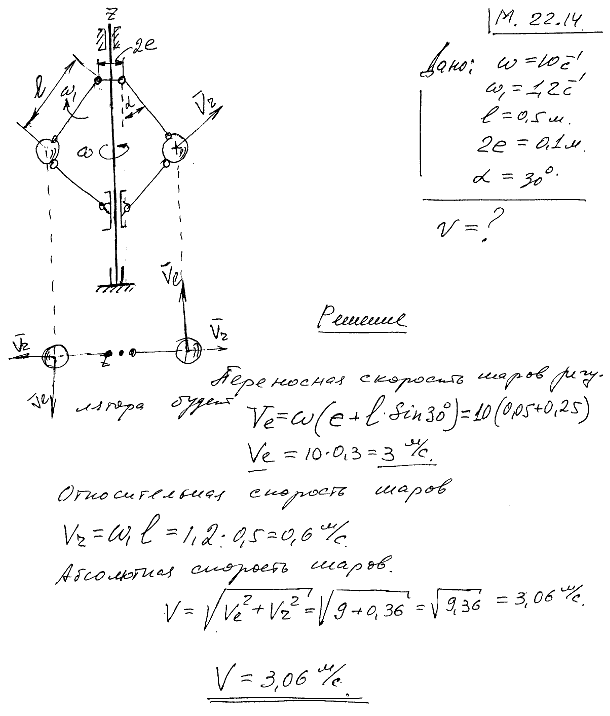 М. 22.14.
Дано: ω = 10 c⁻¹
ω₁ = 1,2 c⁻¹
l = 0,5 м.
2e = 0,1 м.
α = 30°.
V = ?
z
2e
l
ω₁
α
V̄r
ω
V̄e
V̄r
V̄r
z
V̄e
Решение
Переносная скорость шаров регу-
лятора будет
Ve = ω(e + l·Sin30°) = 10(0,05+0,25)
Ve = 10·0,3 = 3 м/с.
Относительная скорость шаров
Vr = ω₁l = 1,2·0,5 = 0,6 м/с.
Абсолютная скорость шаров.
V = √(Ve² + Vr²) = √(9 + 0,36) = √9,36 = 3,06 м/с.
V = 3,06 м/с.